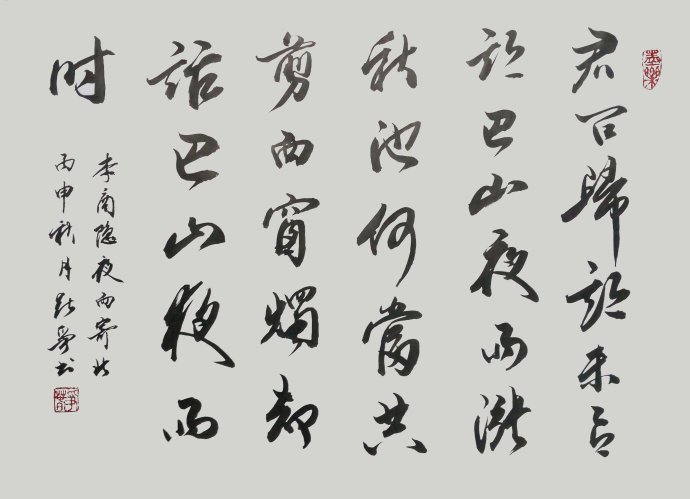 君问歸期未有
期巴山夜雨漲
秋池何當共
剪西窗燭却
话巴山夜雨
时
李商隐夜雨寄北
丙申秋月书